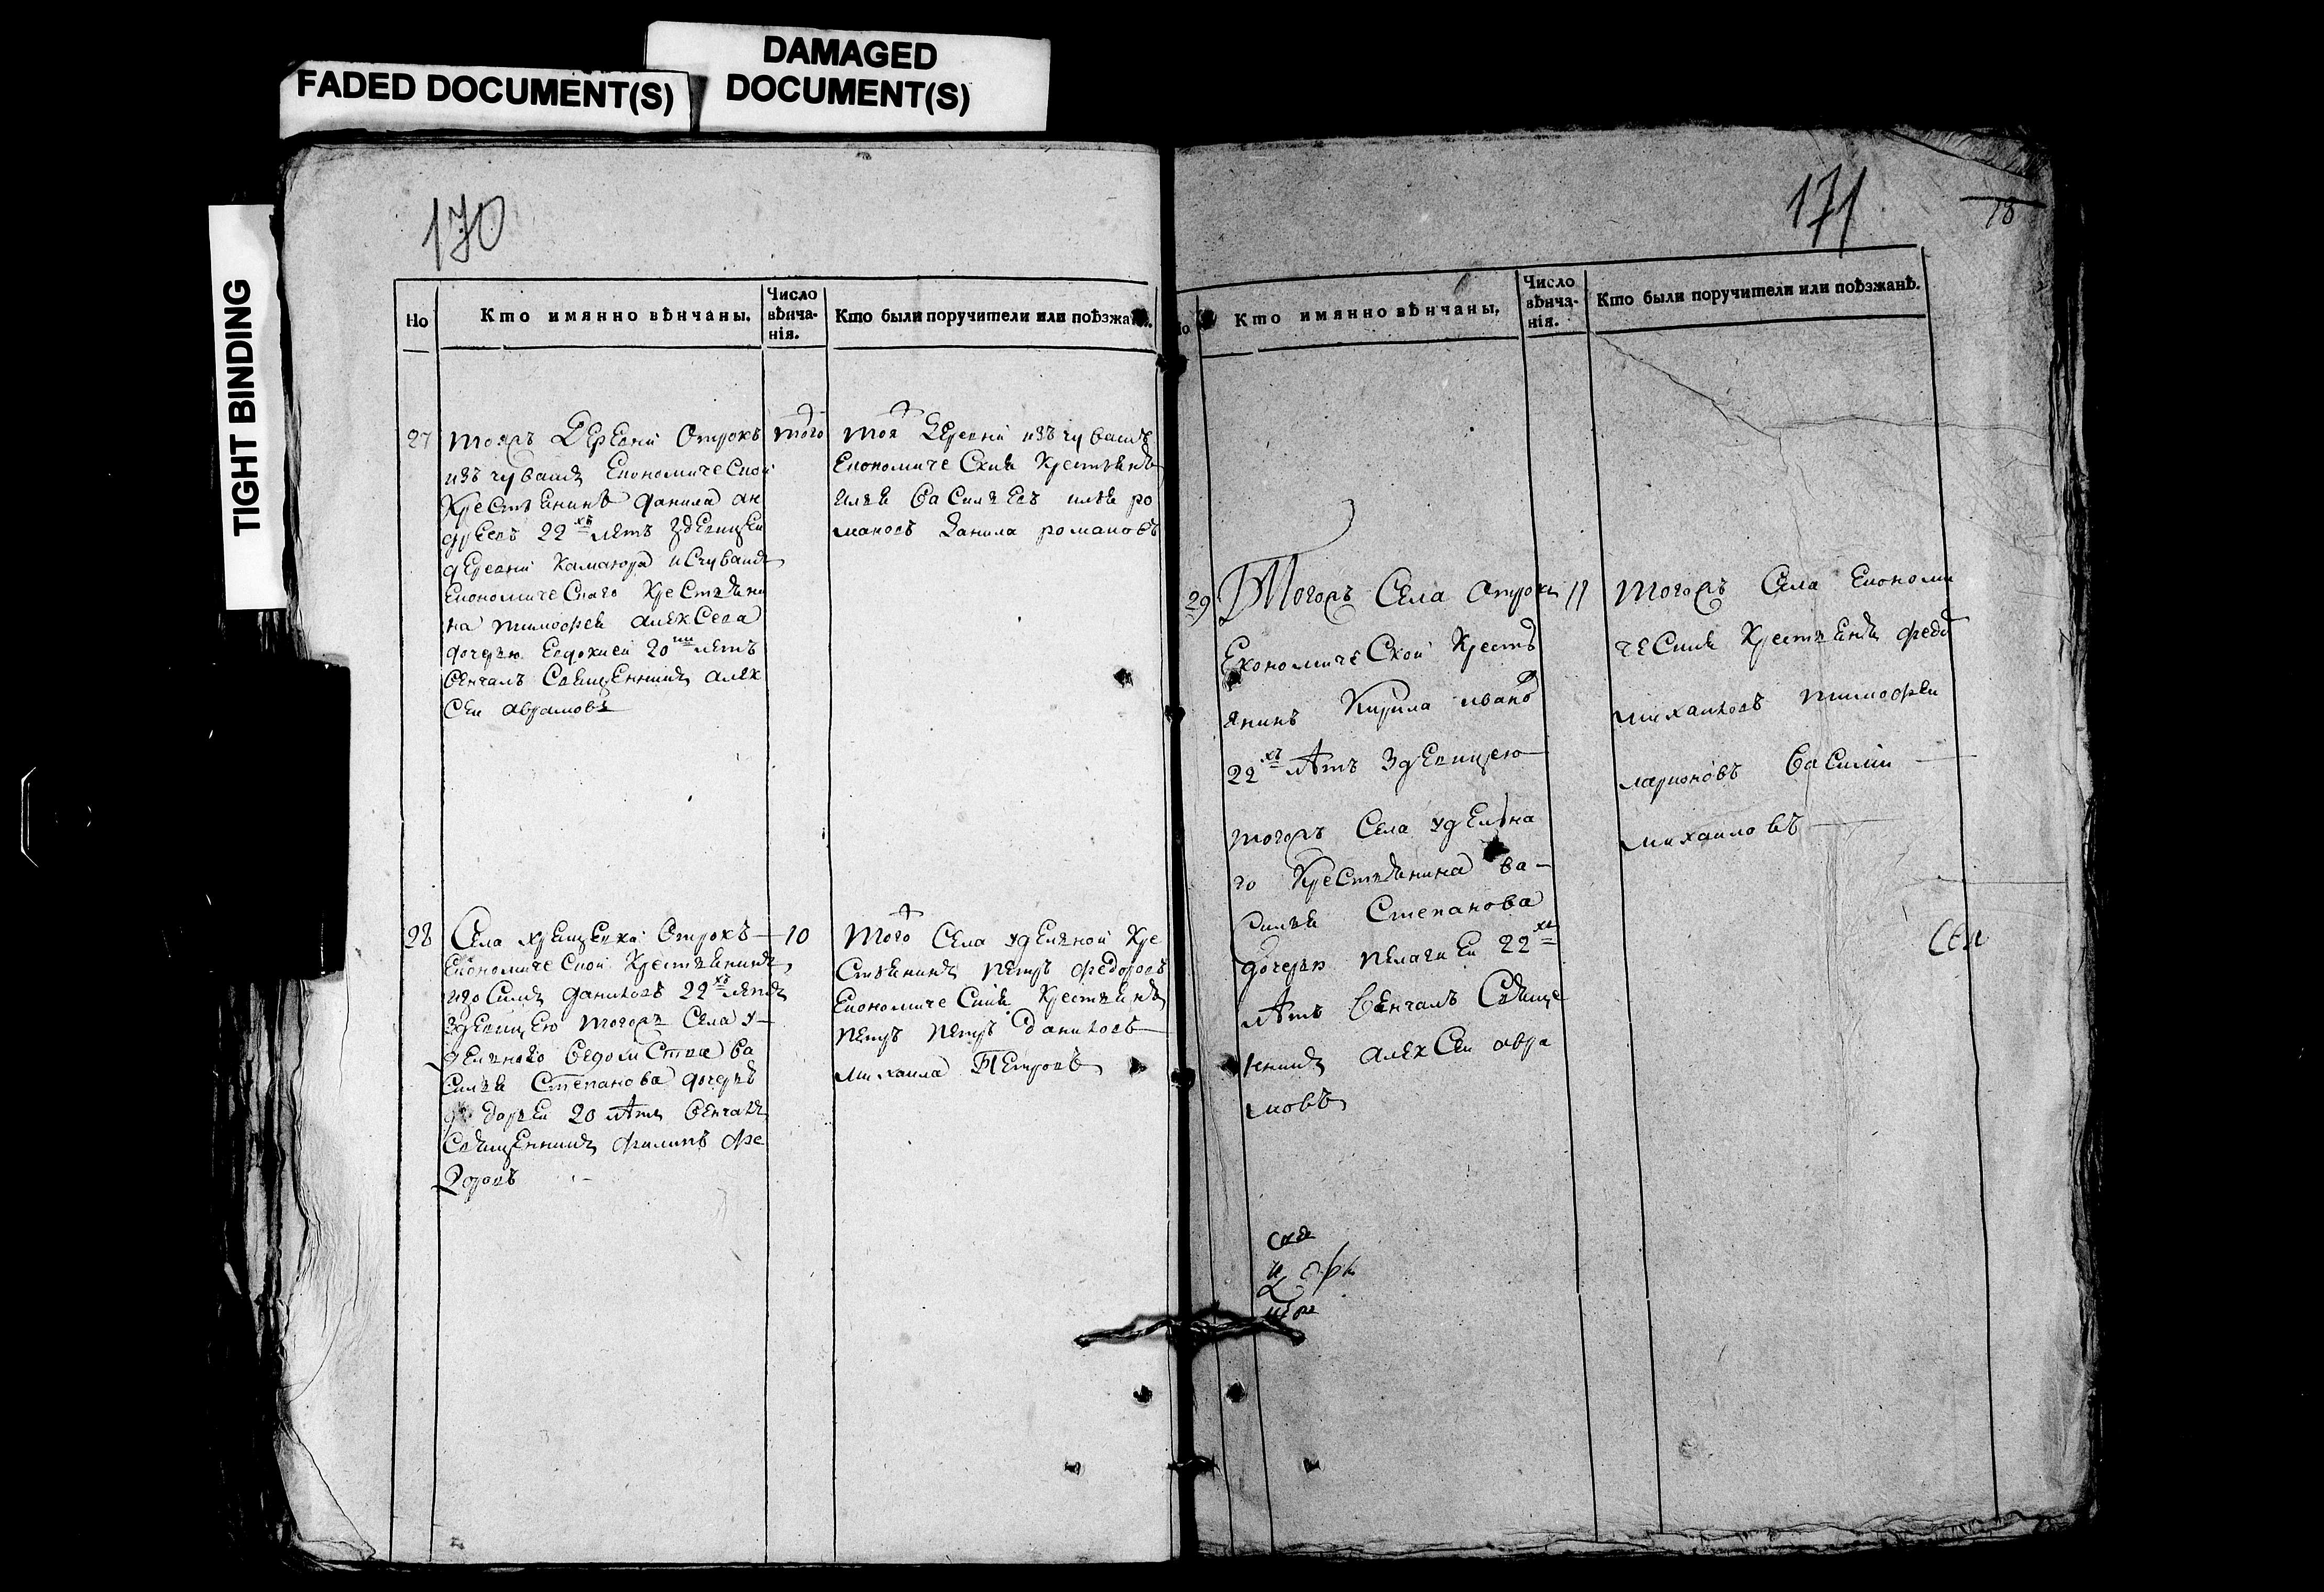 DAMAGED
DOCUMENT(S)
FADED DOCUMENT(S)
TIGHT BINDING
170
Но
Кто имянно вѣнчаны.
Число
вѣнча-
нія.
Кто были поручители или поѣзжа
27
тояжъ деревни отрокъ
изъ чувашъ економической
крестьянинъ данила ан
дреевъ 22хъ лѣтъ здевицеи
деревни исчувашъ
економическаго крестьяни
на тимофея алексеева
дочерью евдокиеи 20ти лѣтъ
венчалъ священникъ алек
сеи аврамовъ
того
тоя деревни изъ чувашъ
економические крестьянѣ
илья васильевъ илья ро
мановъ данила романовъ
28
Села хрещевка отрокъ
економической крестьянинъ
даниловъ 22хъ лѣтъ
здевицею тогожъ села у
дельнаго ведомства ва
силья степанова дочерь
дарьеи 20 лѣтъ венчалъ
священникъ филипъ фе
доровъ
10
того села удельной кре
стьянинъ петръ федоровъ
економические крестьянѣ
петръ петръ даниловъ
михаила петровъ
171
18
Кто имянно вѣнчаны.
Число
вѣнча-
нія.
Кто были поручители или поѣзжанѣ.
29
Тогожъ села отрокъ
економической кресть
янинъ кирила иванов
22хъ лѣтъ здевицею
тогожъ села удельна
го крестьянина ва-
силья степанова
дочерью пелагиеи 22хъ
лѣтъ венчалъ свяще
никъ алексеи авра
мовъ
11
тогожъ села економи
ческие крестьянѣ федо
михаиловъ тимофеи
ларионовъ василии
михаиловъ